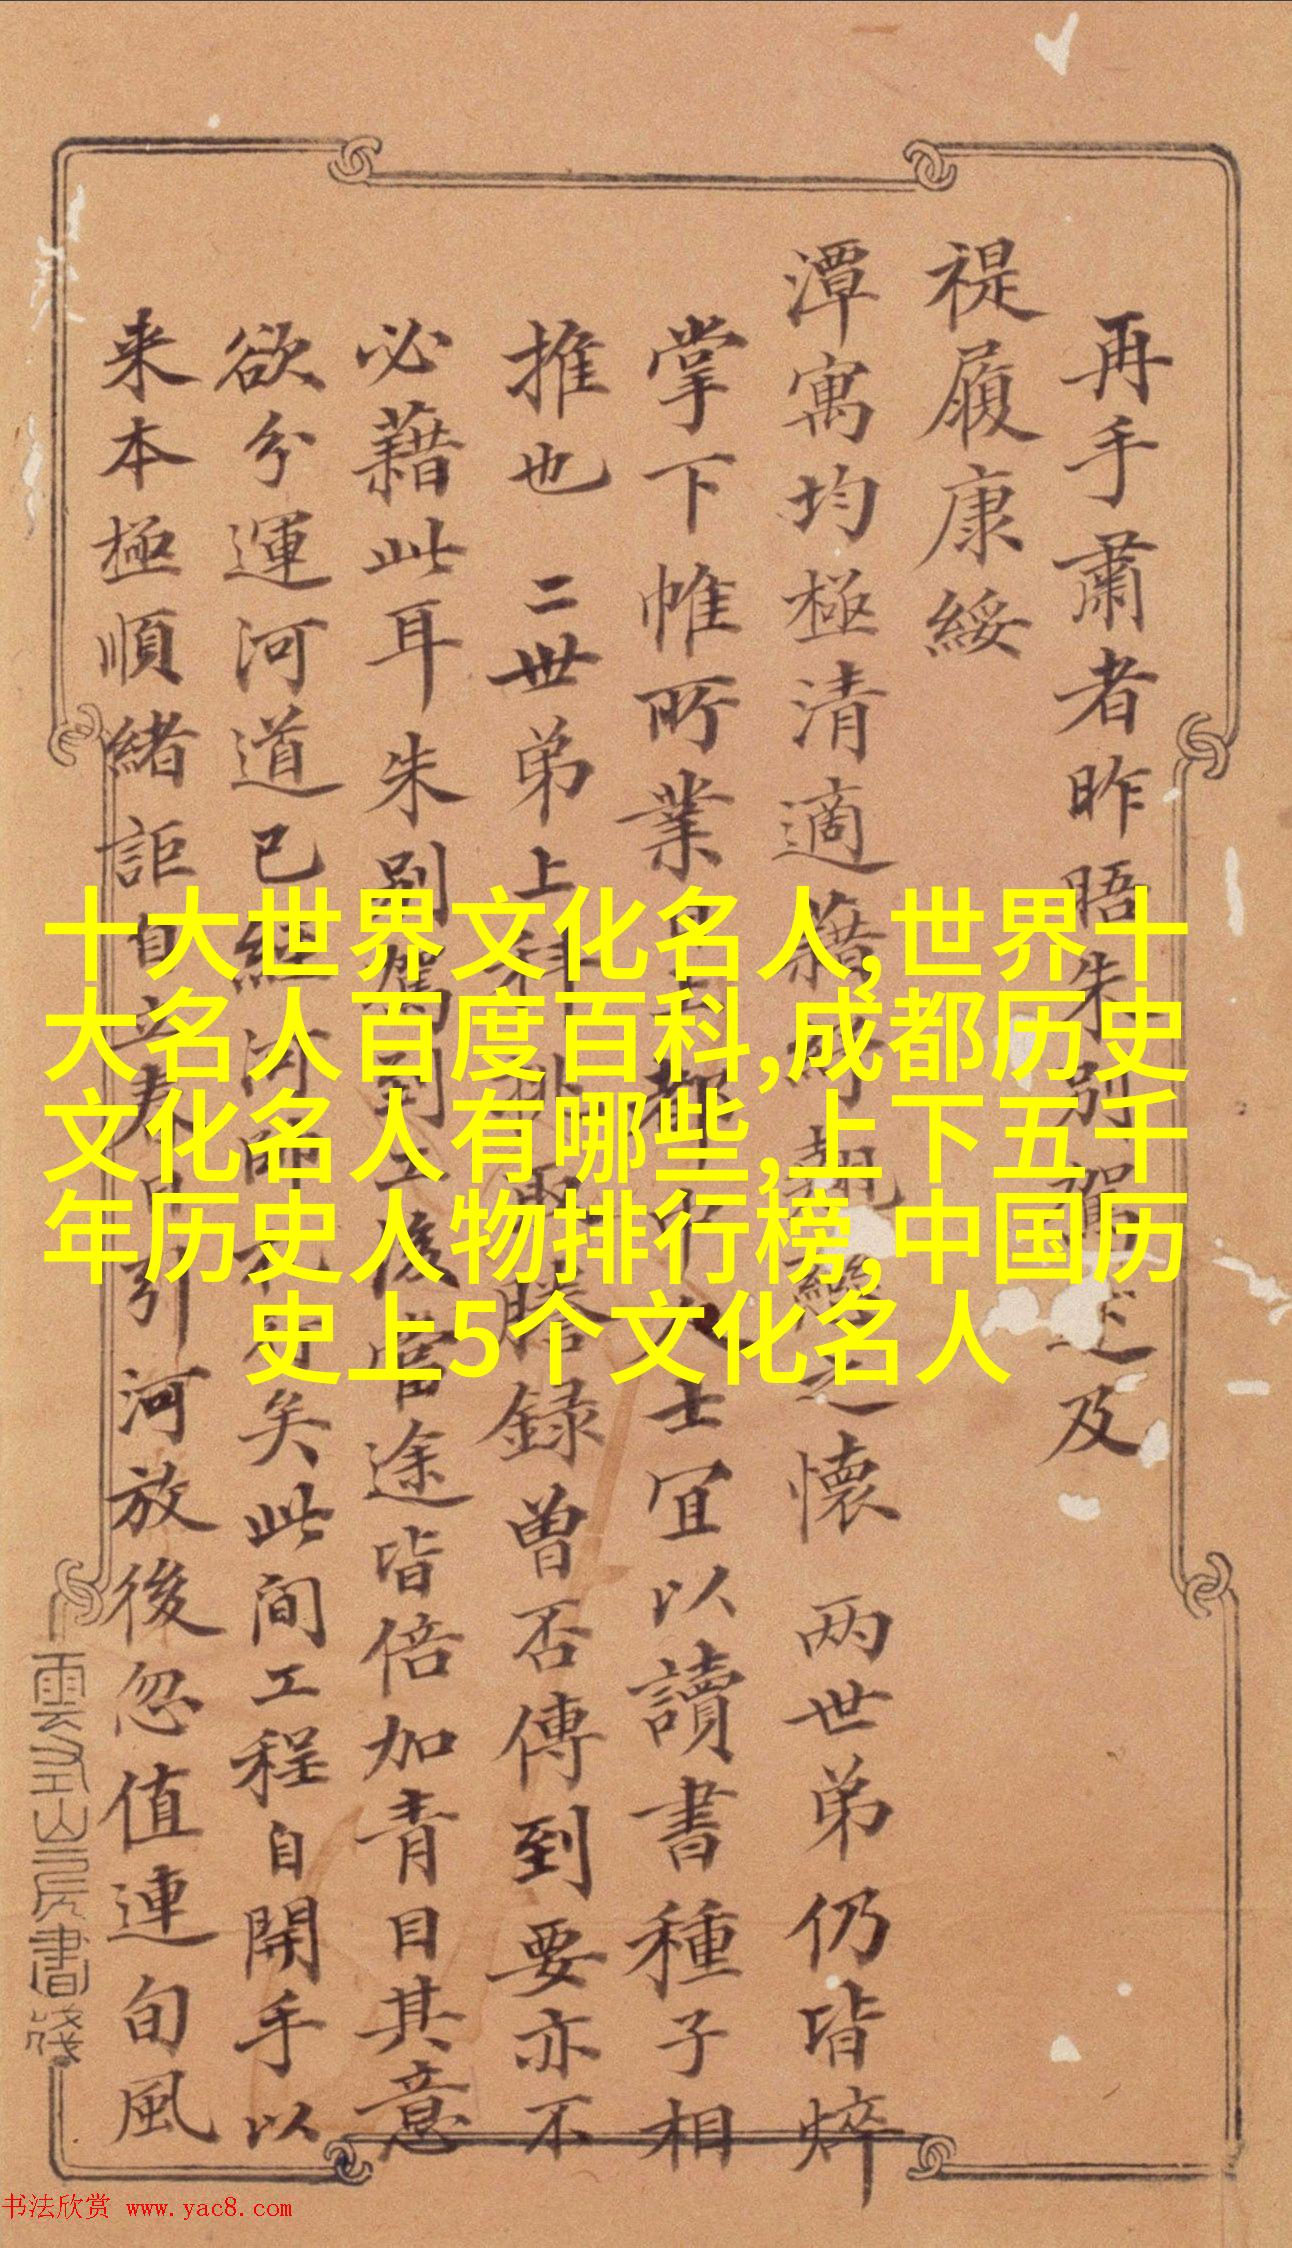 再手肅者昨晤朱別駕述及
禔履康綏
潭寓均極清適藉之懷 两世弟仍皆焠
掌下帷所業士宜以讀書種子相
推也 二世弟上錄曾否傳到要亦不
必藉此耳朱別駕到工後當途皆倍加青目其意
欲分運河道已經矣此間工程自開手以
来本極順緒詎自立春引河放後忽值連旬風
雲山房書牋
十大世界文化名人,世界十
大名人百度百科,成都历史
文化名人有哪些,上下五千
年历史人物排行榜,中国历
史上5个文化名人
书法欣赏 www.yac8.com